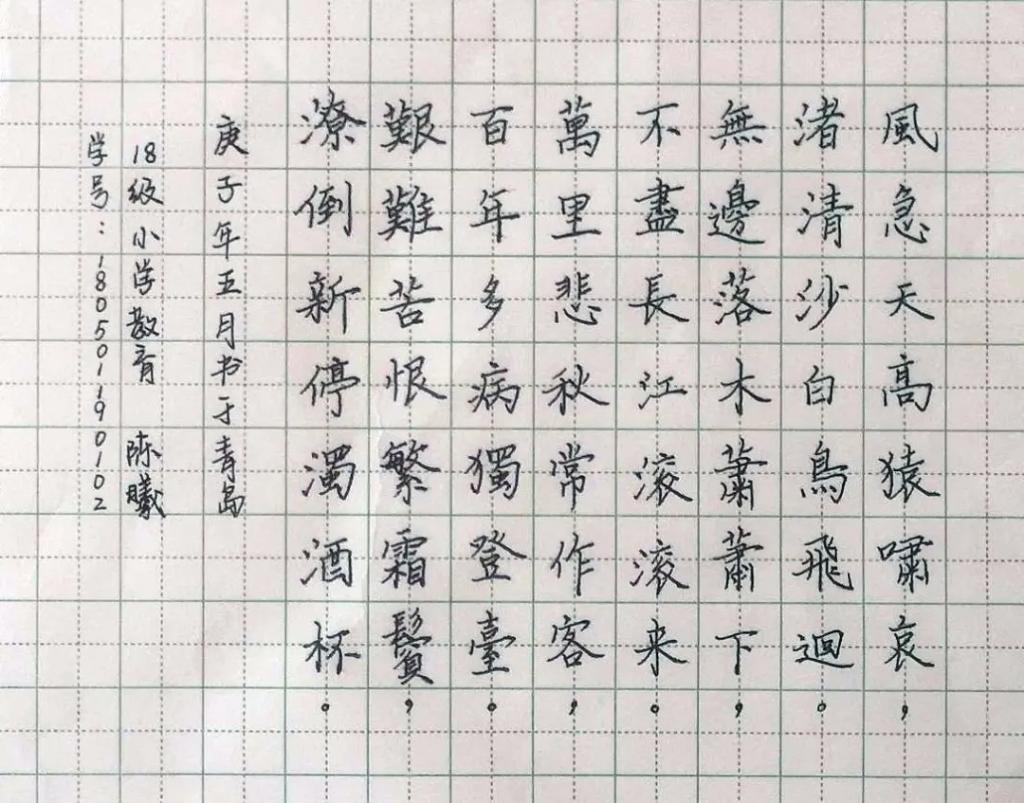 風急天高猿嘯哀，
渚清沙白鳥飛迴。
無邊落木蕭蕭下，
不盡長江滚滚来。
萬里悲秋常作客，
百年多病獨登臺。
艱難苦恨繁霜鬢，
潦倒新停濁酒杯。
庚子年五月书于青岛
18级小学教育 陈曦
学号：180501190102